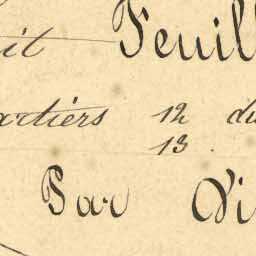 it Feuill
artiers 12 du
13.
Par Vi